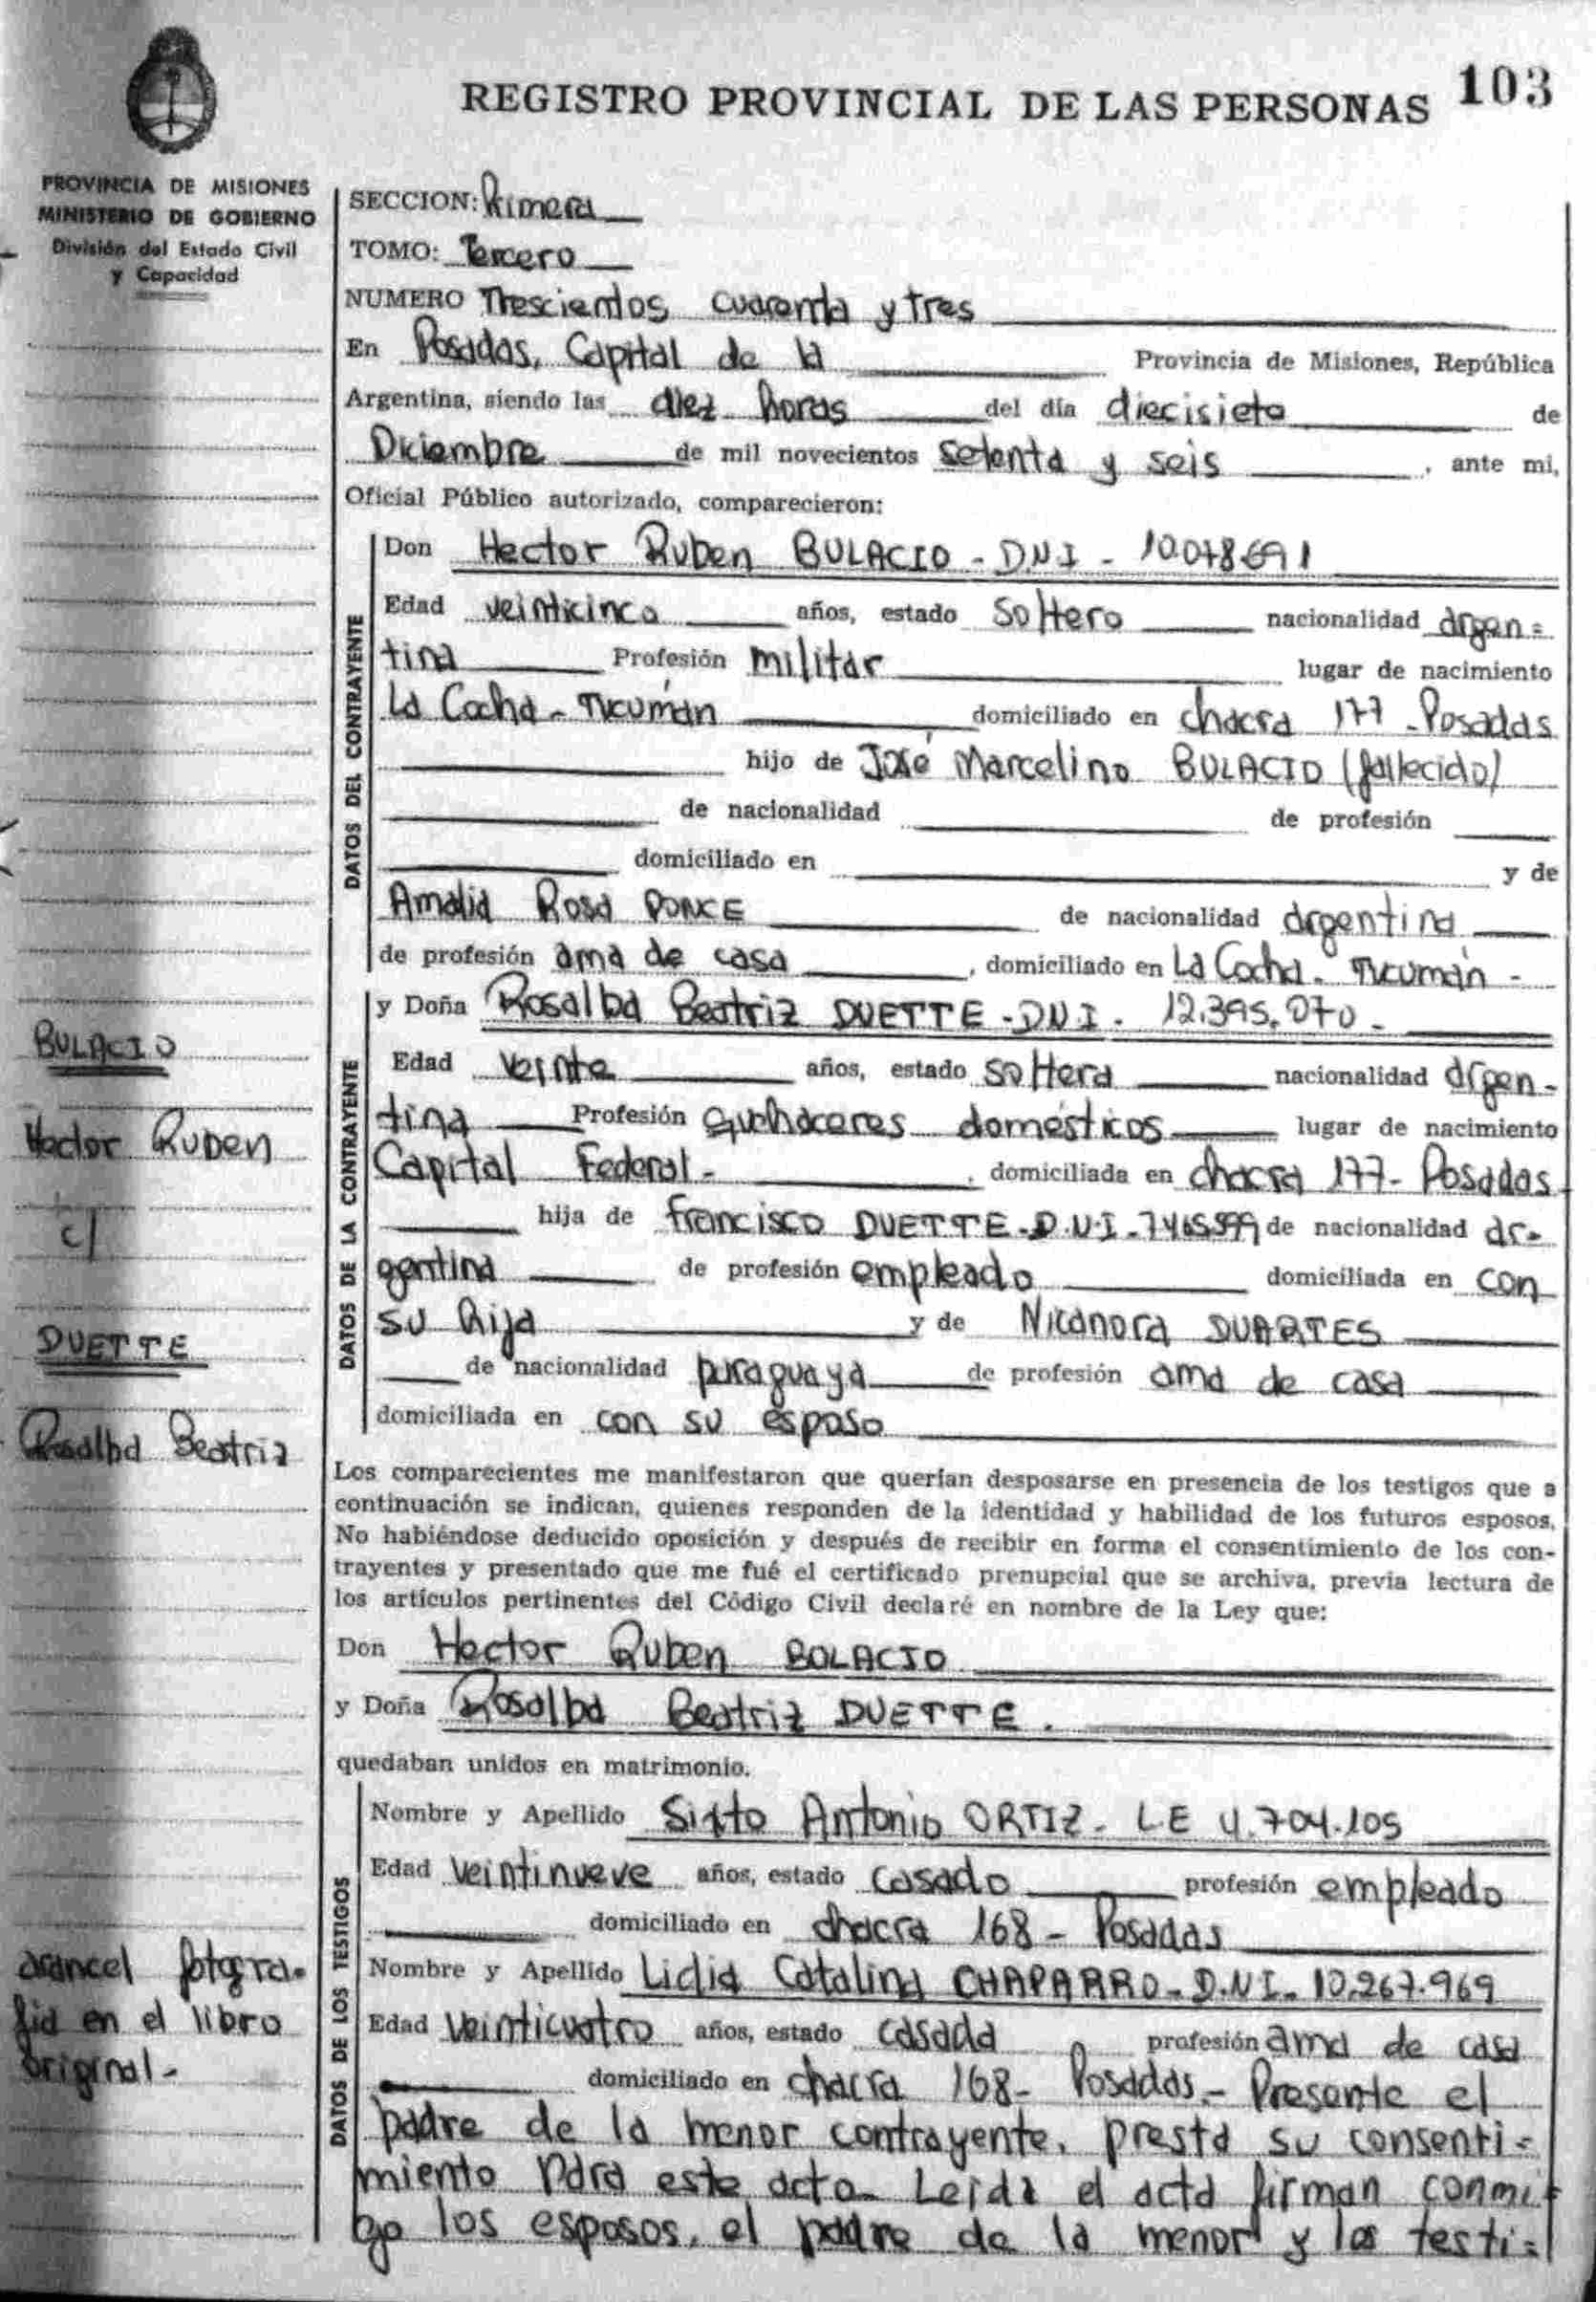 REGISTRO PROVINCIAL DE LAS PERSONAS 103
PROVINCIA DE MISIONES
MINISTERIO DE GOBIERNO
División del Estado Civil
y Capacidad
SECCION: Primera
TOMO: Tercero
NUMERO Trescientos cuarenta y tres
En Posadas, Capital de la Provincia de Misiones, República
Argentina, siendo las diez horas del día diecisiete de
Diciembre de mil novecientos setenta y seis, ante mi,
Oficial Público autorizado, comparecieron:
DATOS DEL CONTRAYENTE
Don Hector Ruben BULACIO - DNI - 10.078.691
Edad veinticinco años, estado soltero nacionalidad argen=
tina Profesión militar lugar de nacimiento
La Cocha - Tucumán domiciliado en chacra 177 - Posadas
hijo de José Marcelino BULACIO (fallecido)
de nacionalidad de profesión
domiciliado en y de
Amalia Rosa PONCE de nacionalidad argentina
de profesión ama de casa, domiciliado en La Cocha - Tucumán -
DATOS DE LA CONTRAYENTE
y Doña Rosalba Beatriz DUETTE - DNI - 12.395.070 -
Edad veinte años, estado soltera nacionalidad argen-
tina Profesión quehaceres domésticos lugar de nacimiento
Capital Federal -, domiciliada en chacra 177 - Posadas
hija de Francisco DUETTE - D.N.I - 7465599 de nacionalidad ar-
gentina de profesión empleado domiciliada en con
su hija y de Nicanora DUARTES
de nacionalidad paraguaya de profesión ama de casa
domiciliada en con su esposo
Los comparecientes me manifestaron que querían desposarse en presencia de los testigos que a
continuación se indican, quienes responden de la identidad y habilidad de los futuros esposos.
No habiéndose deducido oposición y después de recibir en forma el consentimiento de los con-
trayentes y presentado que me fué el certificado prenupcial que se archiva, previa lectura de
los artículos pertinentes del Código Civil declaré en nombre de la Ley que:
Don Hector Ruben BULACIO
y Doña Rosalba Beatriz DUETTE.
quedaban unidos en matrimonio.
DATOS DE LOS TESTIGOS
Nombre y Apellido Sixto Antonio ORTIZ - LE 4.704.105
Edad veintinueve años, estado casado profesión empleado
domiciliado en chacra 168 - Posadas
Nombre y Apellido Lidia Catalina CHAPARRO - D.N.I - 10.267.969
Edad veinticuatro años, estado casada profesión ama de casa
domiciliado en chacra 168 - Posadas - Presente el
padre de la menor contrayente, presta su consenti=
miento para este acto - Leída el acta firman conmi
go los esposos, el padre de la menor y los testi=
BULACIO
Hector Ruben
c/
DUETTE
Rosalba Beatriz
arancel fotogra=
fia en el libro
original -